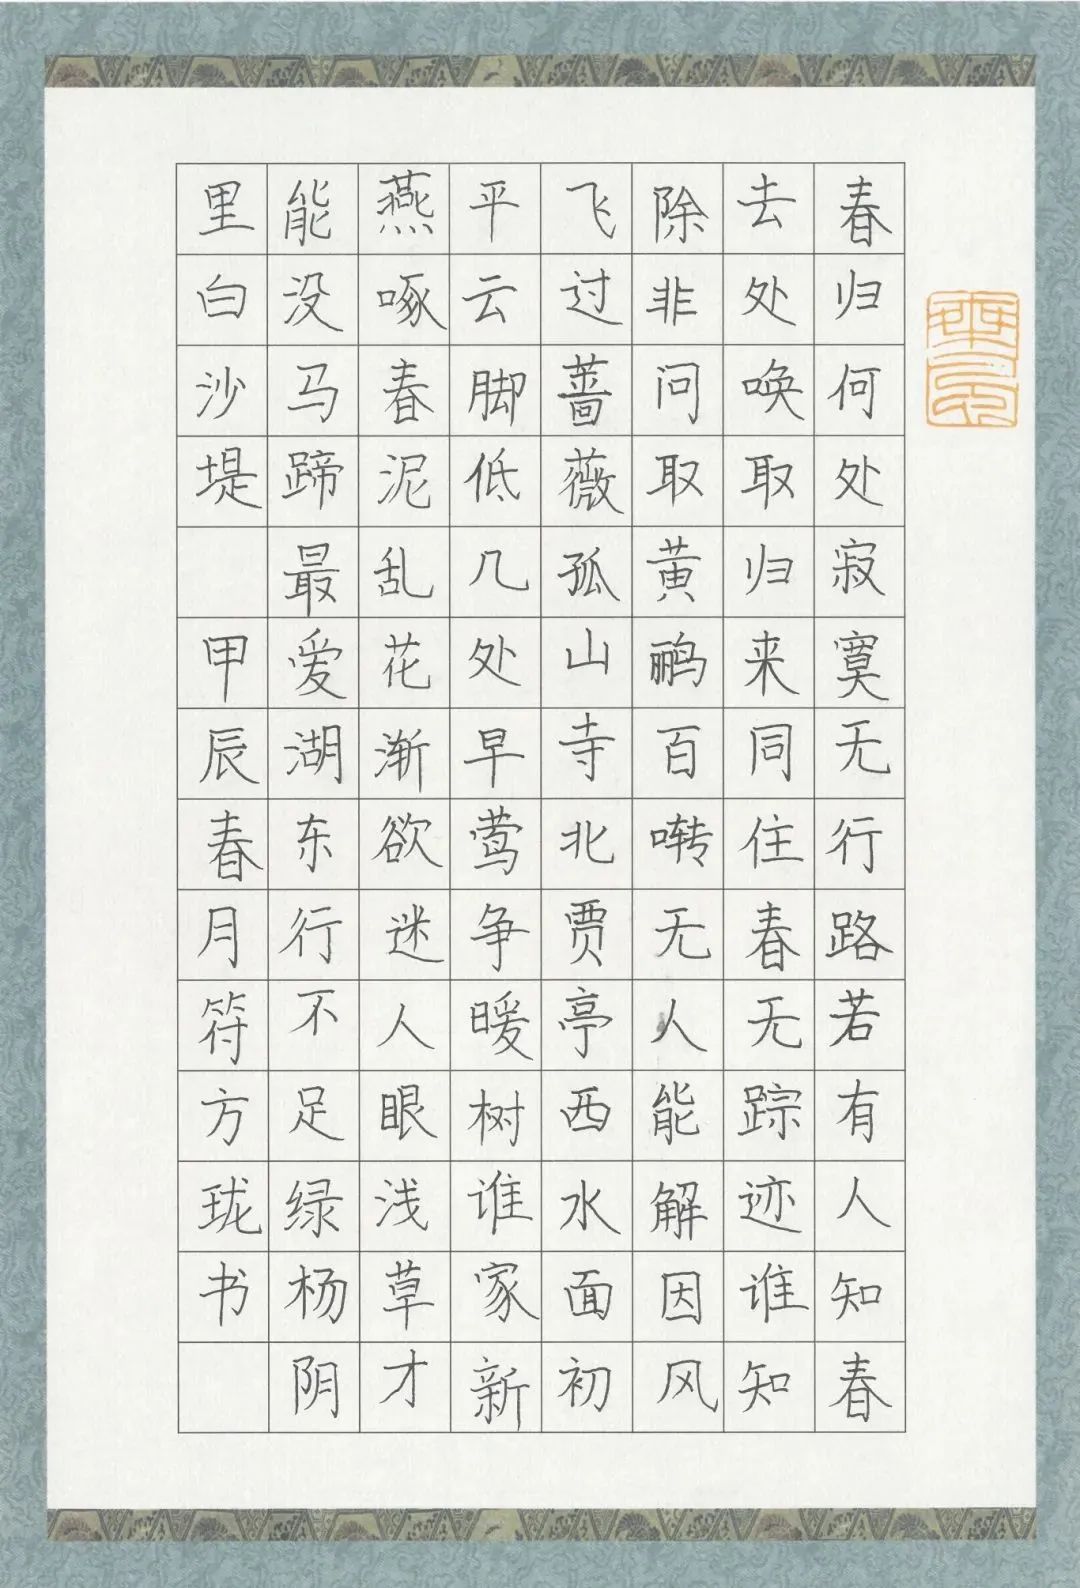 春归何处寂寞无行路若有人知春
去处唤取归来同住春无踪迹谁知
除非问取黄鹂百啭无人能解因风
飞过蔷薇孤山寺北贾亭西水面初
平云脚低几处早莺争暖树谁家新
燕啄春泥乱花渐欲迷人眼浅草才
能没马蹄最爱湖东行不足绿杨阴
里白沙堤 甲辰春月符方珑书